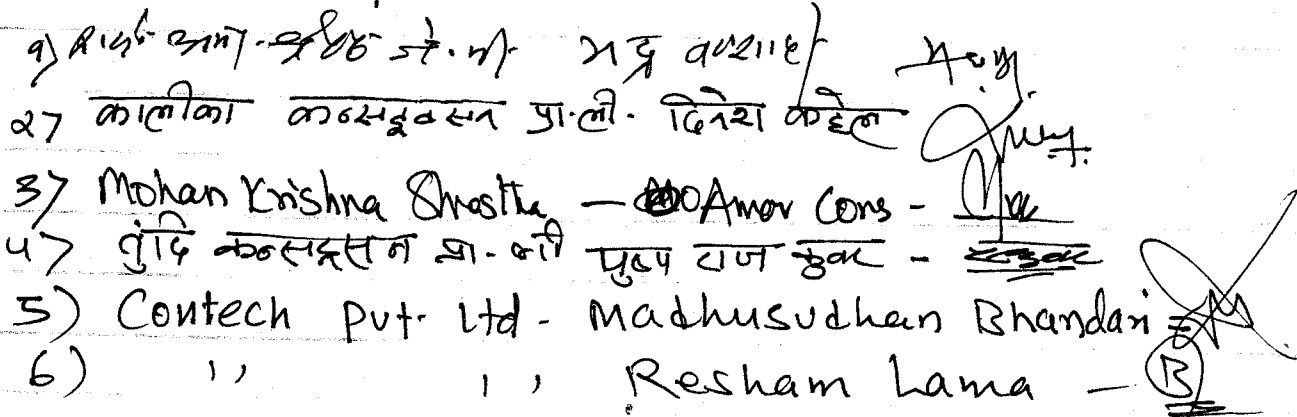 १) जे.भी. भद्र
२) कालीका कन्सट्रक्सन प्रा.ली. दिनेश कडेल
3) Mohan Krishna Shrestha — Amar Cons -
४) तुंदि कन्सट्रक्सन प्रा. ली पुष्प राज कुवर -
5) Contech Pvt. Ltd - Madhusudhan Bhandari =
6) ,, ,, Resham Lama — B